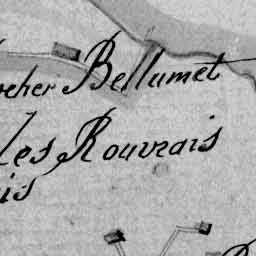 ocher Bellumet
les Rouvrais
is